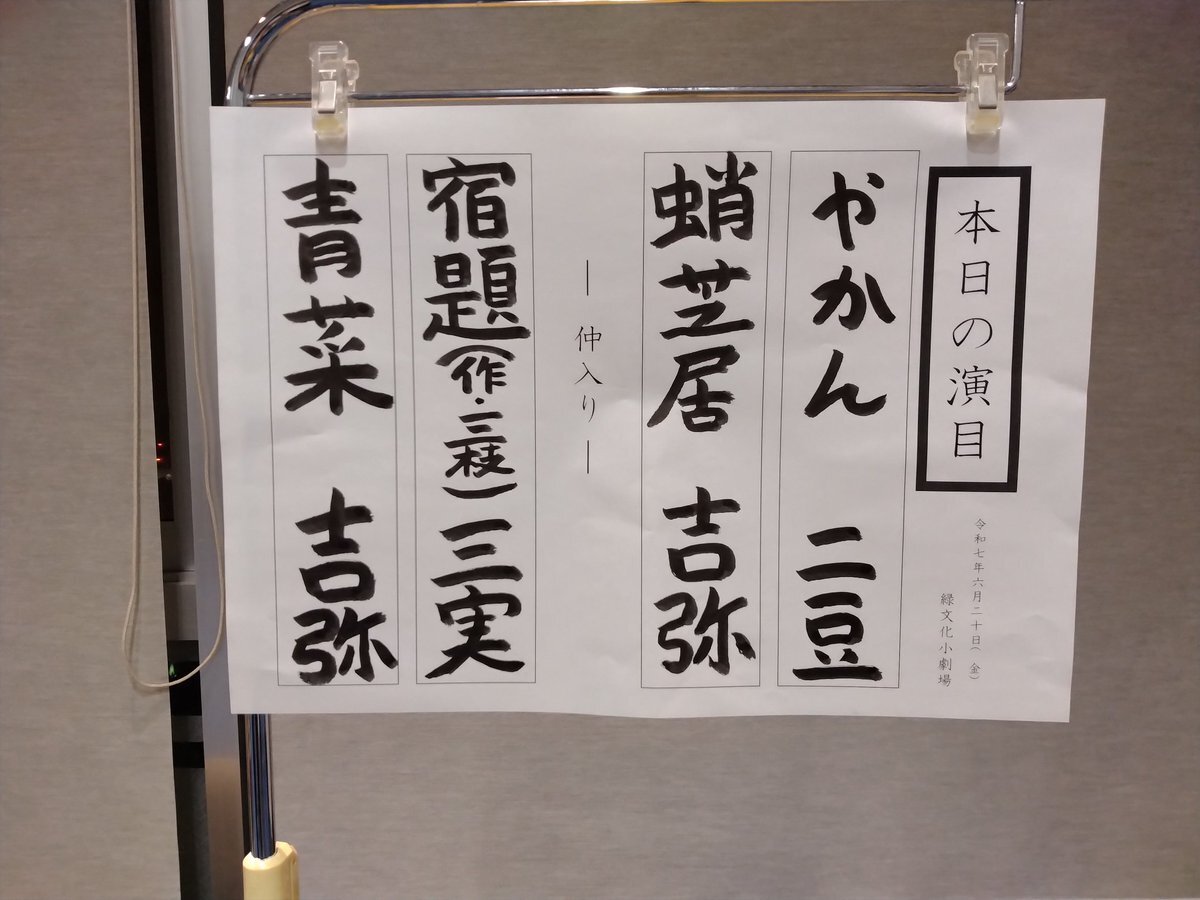 本日の演目
令和七年六月二十日(金)
緑文化小劇場
やかん 二豆
蛸芝居 吉弥
―仲入り―
宿題(作・三枝)三実
青菜 吉弥